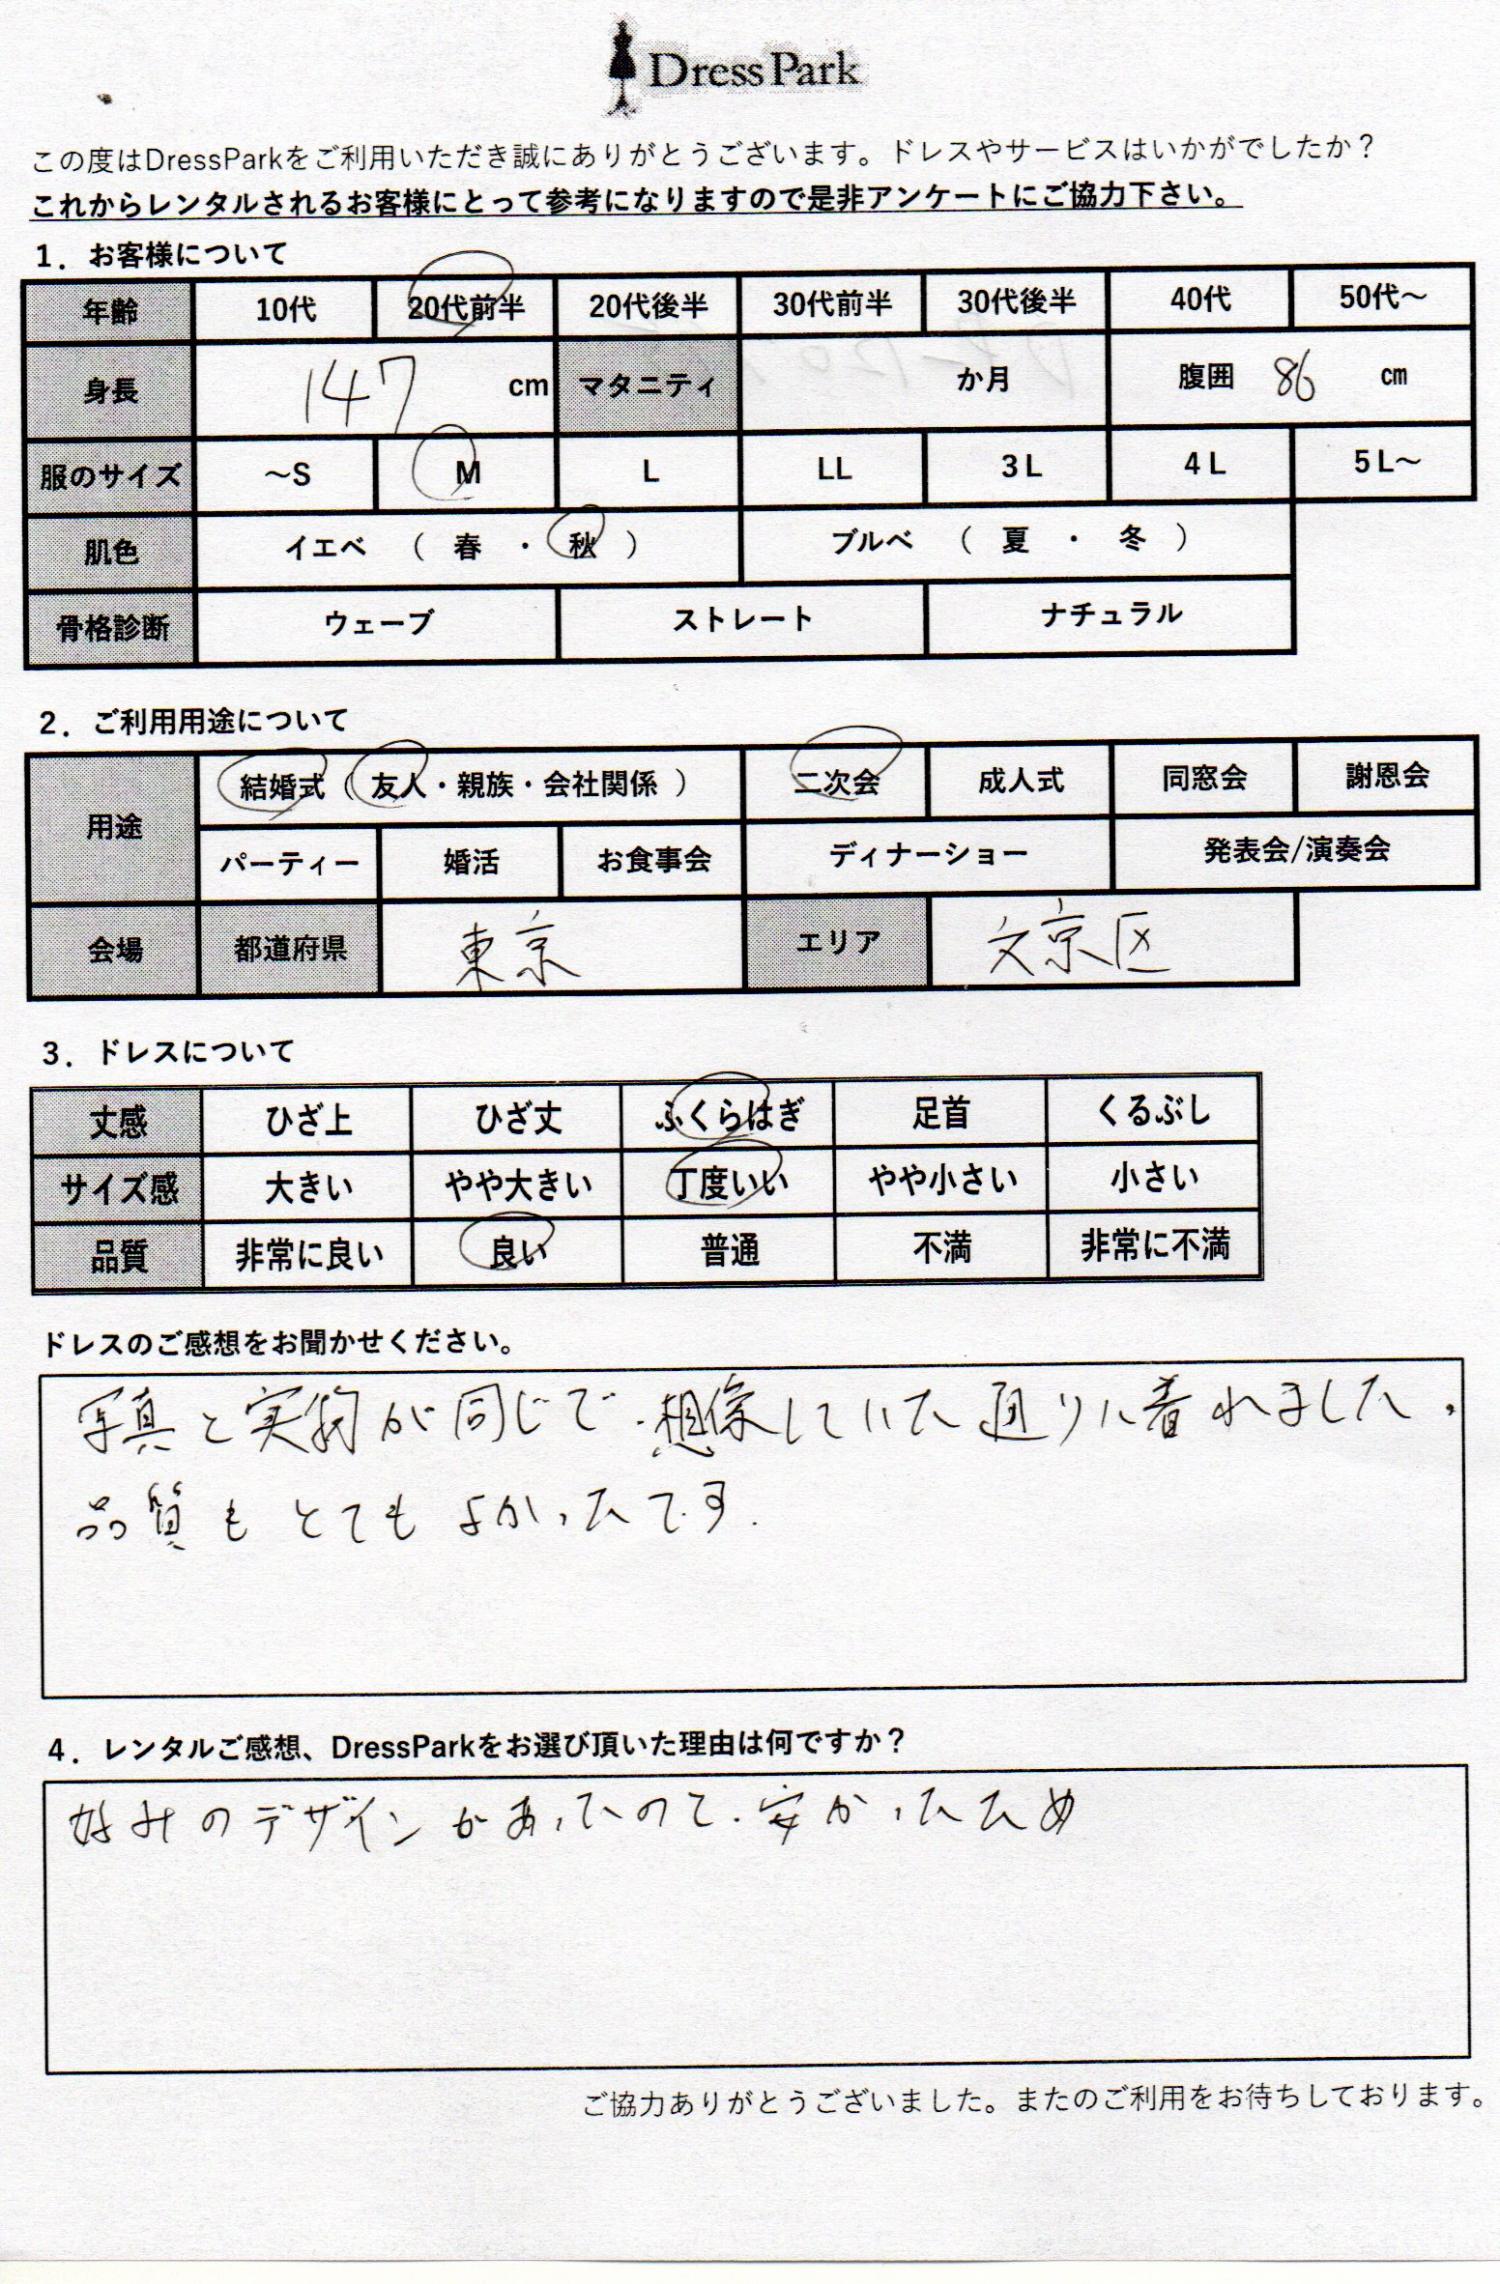 Dress Park
この度はDressParkをご利用いただき誠にありがとうございます。ドレスやサービスはいかがでしたか？
これからレンタルされるお客様にとって参考になりますので是非アンケートにご協力下さい。
1．お客様について
年齢 10代 20代前半 20代後半 30代前半 30代後半 40代 50代～
身長 147 cm マタニティ か月 腹囲 86 cm
服のサイズ ～S M L LL 3L 4L 5L～
肌色 イエベ （ 春 ・ 秋 ） ブルベ （ 夏 ・ 冬 ）
骨格診断 ウェーブ ストレート ナチュラル
2．ご利用用途について
用途 結婚式（友人・親族・会社関係） 二次会 成人式 同窓会 謝恩会
パーティー 婚活 お食事会 ディナーショー 発表会/演奏会
会場 都道府県 東京 エリア 文京区
3．ドレスについて
丈感 ひざ上 ひざ丈 ふくらはぎ 足首 くるぶし
サイズ感 大きい やや大きい 丁度いい やや小さい 小さい
品質 非常に良い 良い 普通 不満 非常に不満
ドレスのご感想をお聞かせください。
写真と実物が同じで、想像していた通りに着れました。
品質もとてもよかったです.
4．レンタルご感想、DressParkをお選び頂いた理由は何ですか？
好みのデザインがあったので、安かったため
ご協力ありがとうございました。またのご利用をお待ちしております。